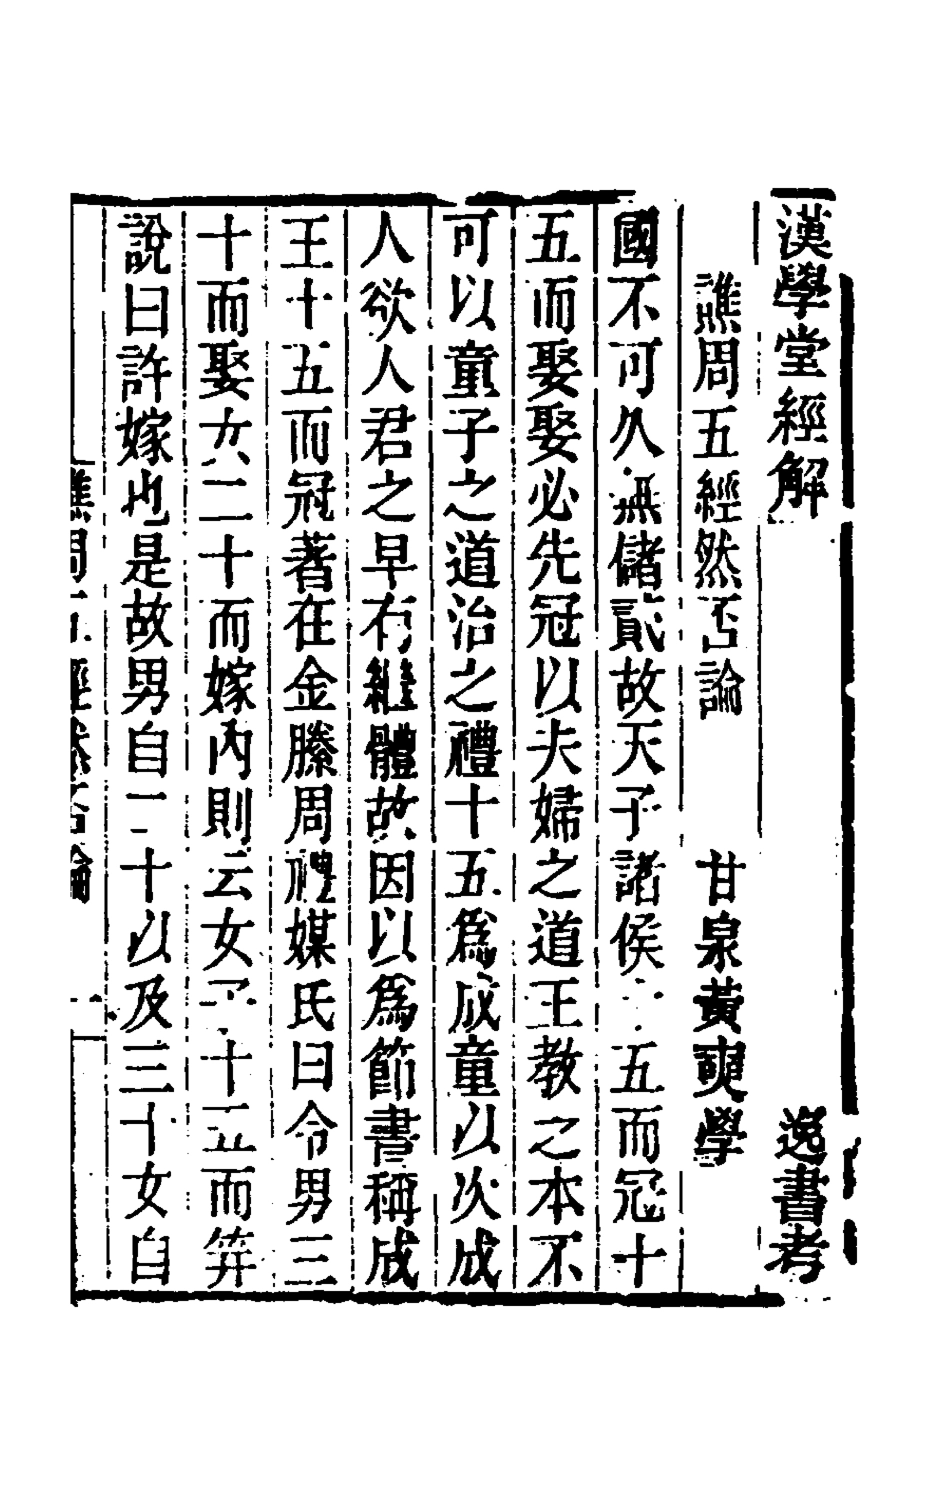 漢學堂經解 逸書考
譙周五經然否論 甘泉黃奭學
國不可久無儲貳故天子諸侯十五而冠十
五而娶娶必先冠以夫婦之道王教之本不
可以童子之道治之禮十五爲成童以次成
人欲人君之早有繼體故因以爲節書稱成
王十五而冠著在金縢周禮媒氏曰令男三
十而娶女二十而嫁內則云女子十五而笄
說曰許嫁也是故男自二十以及三十女自
譙周五經然否論 一